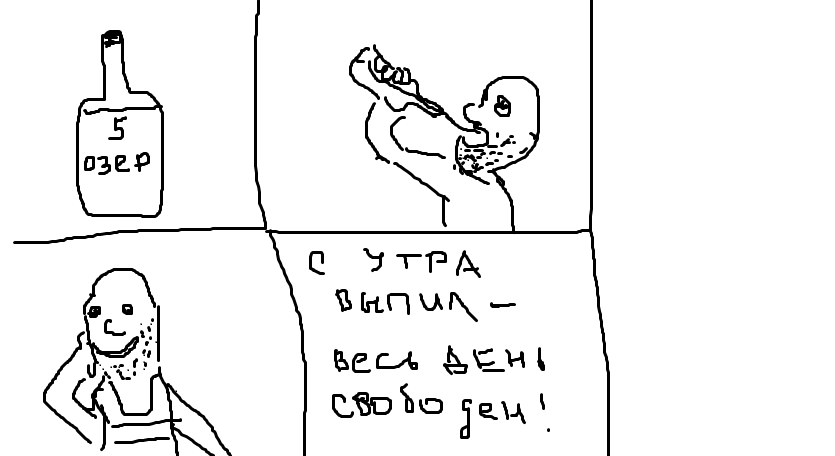 5
озер
С УТРА
ВЫПИЛ –
ВЕСЬ ДЕНЬ
СВОБОДЕН!